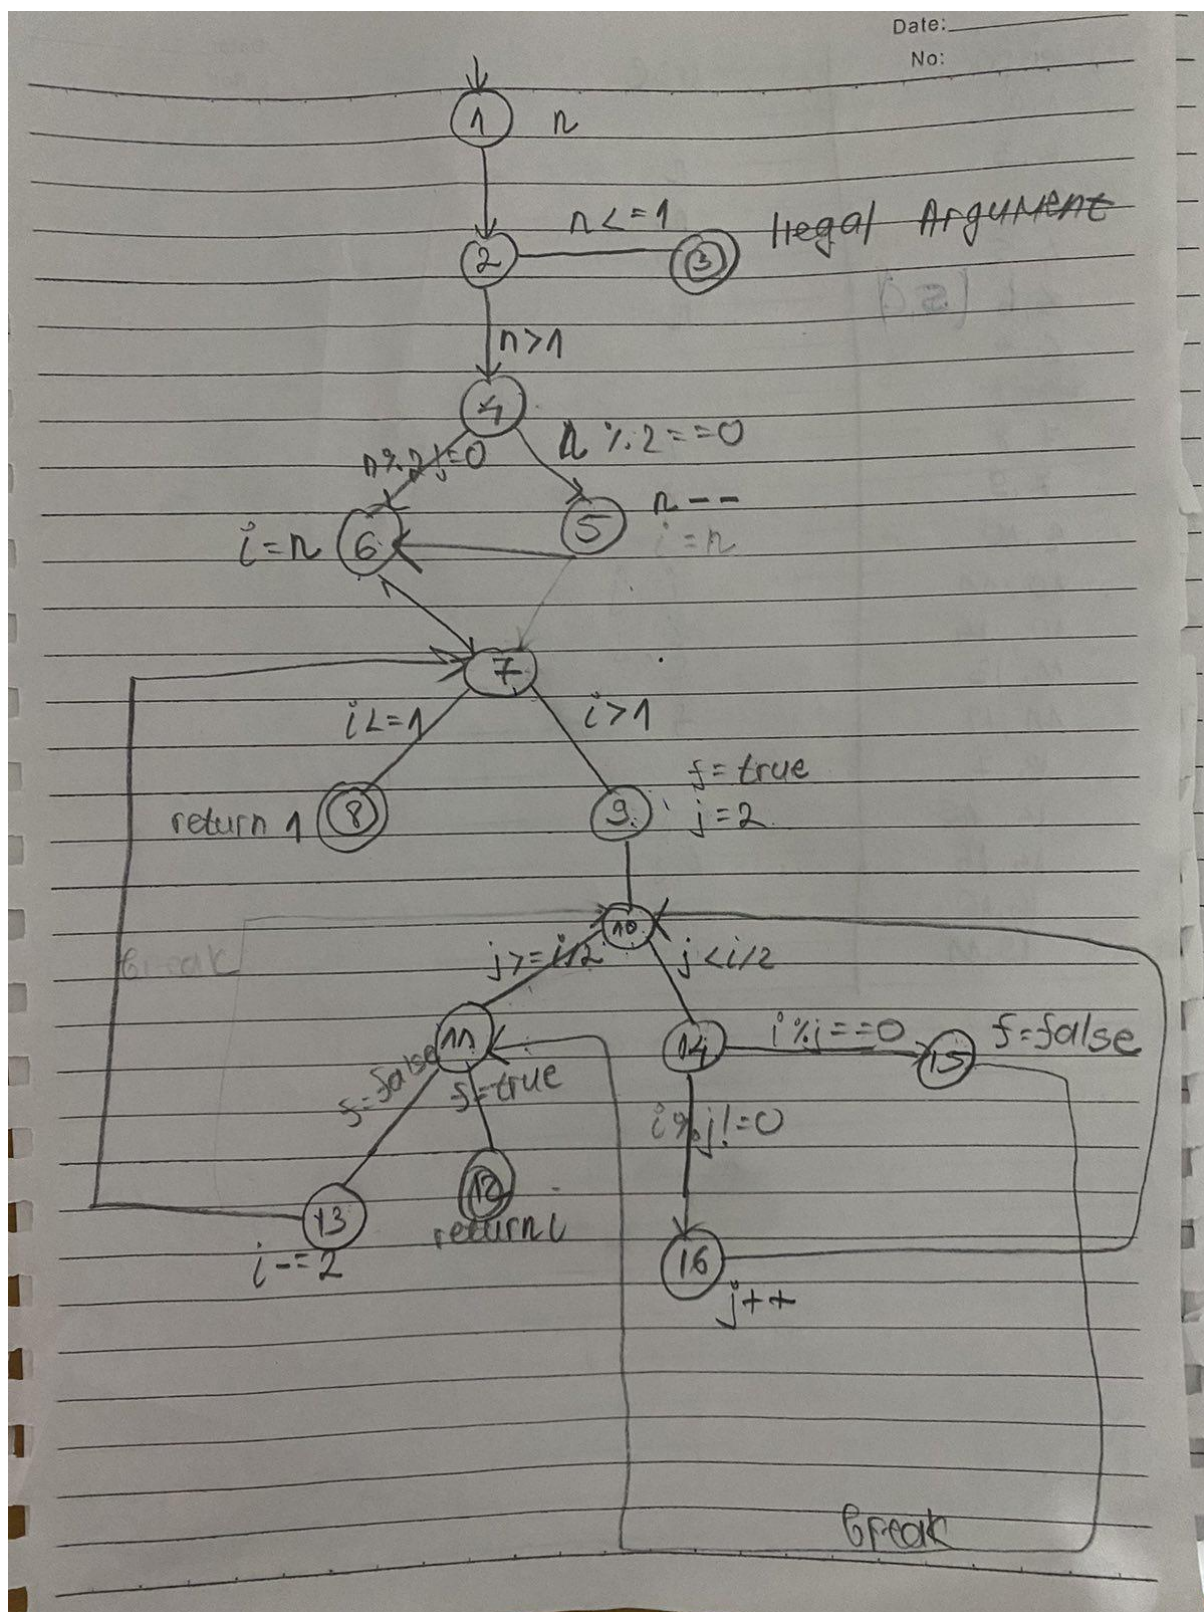 Date:
No:
1 n
n<=1
2 3 Ilegal Argument
n>1
4
n%2!=0 n%2==0
n--
i=n 6 5 i=n
7
i<=1 i>1
f=true
return 1 8 9 j=2
10
break j>=i/2 j<i/2
11 14 i%j==0 15 f=false
f=false f=true
i%j!=0
12
13 return i
i-=2 16
j++
break